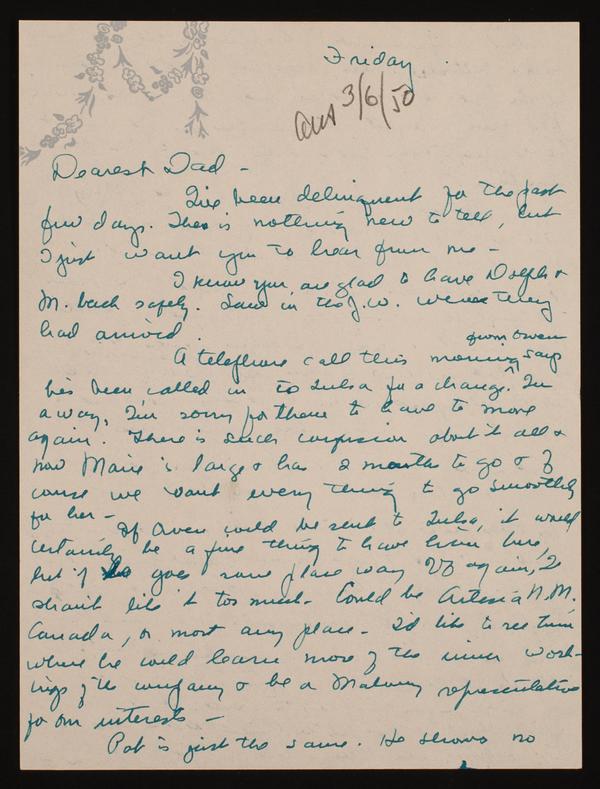 Friday
Ans 3/6/50
Dearest Dad -
I've been delinquent for the past
few days. There is nothing new to tell, but
I just want you to hear from me -
I know you are glad to have Dolph &
M. back safely. Saw in the J.W. where they
had arrived.
from Owen
A telephone call this morning says
he's been called in to Tulsa for a change. In
a way, I'm sorry for them to have to move
again. There is such confusion about it all &
now Marie is large & has 2 months to go & of
course we want every thing to go smoothly
for her -
If Owen could be sent to Tulsa, it would
certainly be a fine thing to have him here,
but if he goes some place way off again, I
shan't like it too much - Could be Artesia N.M.
Canada, or most any place - I'd like to see him
where he could learn more of the inner work-
ings of the company & be a Mahoney representative
for our interests -
Pat is just the same. He shows no